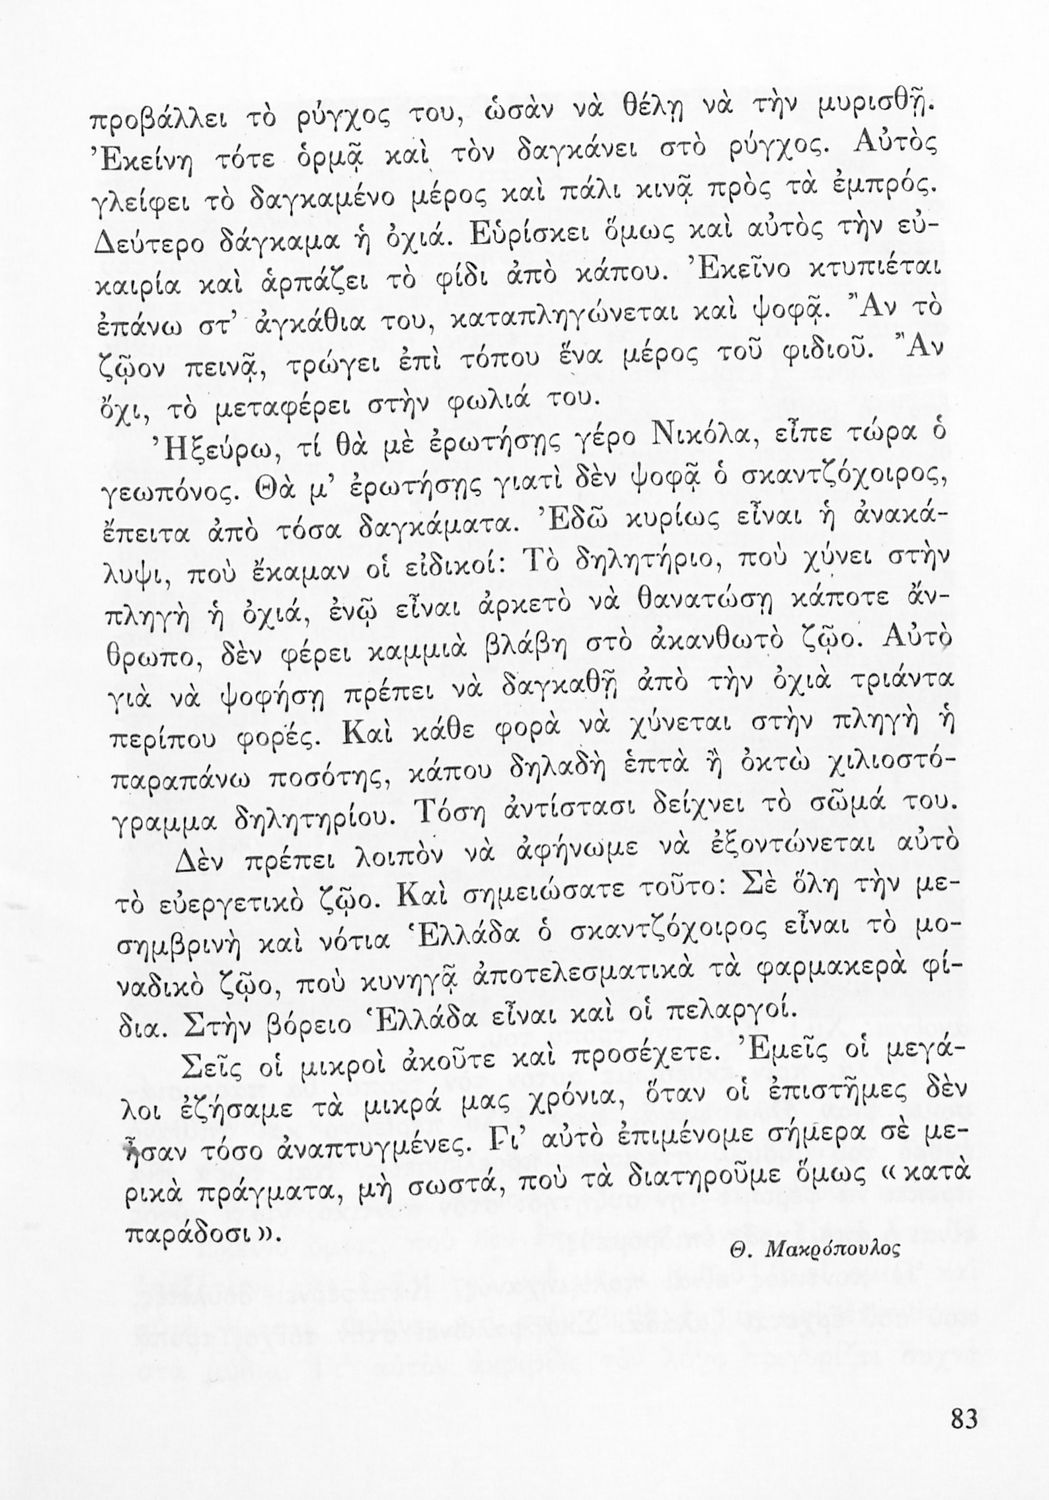 προβάλλει τὸ ρύγχος του, ὡσὰν νὰ θέλῃ νὰ τὴν μυρισθῇ.
Ἐκείνη τότε ὁρμᾷ καὶ τὸν δαγκάνει στὸ ρύγχος. Αὐτὸς
γλείφει τὸ δαγκαμένο μέρος καὶ πάλι κινᾷ πρὸς τὰ ἐμπρός.
Δεύτερο δάγκαμα ἡ ὀχιά. Εὑρίσκει ὅμως καὶ αὐτὸς τὴν εὐ-
καιρία καὶ ἁρπάζει τὸ φίδι ἀπὸ κάπου. Ἐκεῖνο κτυπιέται
ἐπάνω στ’ ἀγκάθια του, καταπληγώνεται καὶ ψοφᾷ. Ἂν τὸ
ζῷον πεινᾷ, τρώγει ἐπὶ τόπου ἕνα μέρος τοῦ φιδιοῦ. Ἂν
ὄχι, τὸ μεταφέρει στὴν φωλιά του.
Ἠξεύρω, τί θὰ μὲ ἐρωτήσῃς γέρο Νικόλα, εἶπε τώρα ὁ
γεωπόνος. Θὰ μ’ ἐρωτήσῃς γιατὶ δὲν ψοφᾷ ὁ σκαντζόχοιρος,
ἔπειτα ἀπὸ τόσα δαγκάματα. Ἐδῶ κυρίως εἶναι ἡ ἀνακά-
λυψι, ποὺ ἔκαμαν οἱ εἰδικοί: Τὸ δηλητήριο, ποὺ χύνει στὴν
πληγὴ ἡ ὀχιά, ἐνῷ εἶναι ἀρκετὸ νὰ θανατώσῃ κάποτε ἄν-
θρωπο, δὲν φέρει καμμιὰ βλάβη στὸ ἀκανθωτὸ ζῷο. Αὐτὸ
γιὰ νὰ ψοφήσῃ πρέπει νὰ δαγκαθῇ ἀπὸ τὴν ὀχιὰ τριάντα
περίπου φορές. Καὶ κάθε φορὰ νὰ χύνεται στὴν πληγὴ ἡ
παραπάνω ποσότης, κάπου δηλαδὴ ἑπτὰ ἢ ὀκτὼ χιλιοστό-
γραμμα δηλητηρίου. Τόση ἀντίστασι δείχνει τὸ σῶμά του.
Δὲν πρέπει λοιπὸν νὰ ἀφήνωμε νὰ ἐξοντώνεται αὐτὸ
τὸ εὐεργετικὸ ζῷο. Καὶ σημειώσατε τοῦτο: Σὲ ὅλη τὴν με-
σημβρινὴ καὶ νότια Ἑλλάδα ὁ σκαντζόχοιρος εἶναι τὸ μο-
ναδικὸ ζῷο, ποὺ κυνηγᾷ ἀποτελεσματικὰ τὰ φαρμακερὰ φί-
δια. Στὴν βόρειο Ἑλλάδα εἶναι καὶ οἱ πελαργοί.
Σεῖς οἱ μικροὶ ἀκοῦτε καὶ προσέχετε. Ἐμεῖς οἱ μεγά-
λοι ἐζήσαμε τὰ μικρά μας χρόνια, ὅταν οἱ ἐπιστῆμες δὲν
ἦσαν τόσο ἀναπτυγμένες. Γι’ αὐτὸ ἐπιμένομε σήμερα σὲ με-
ρικὰ πράγματα, μὴ σωστά, ποὺ τὰ διατηροῦμε ὅμως «κατὰ
παράδοσι».
Θ. Μακρόπουλος
83